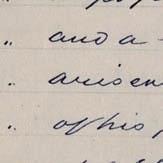 " and a
" arisen
" of his